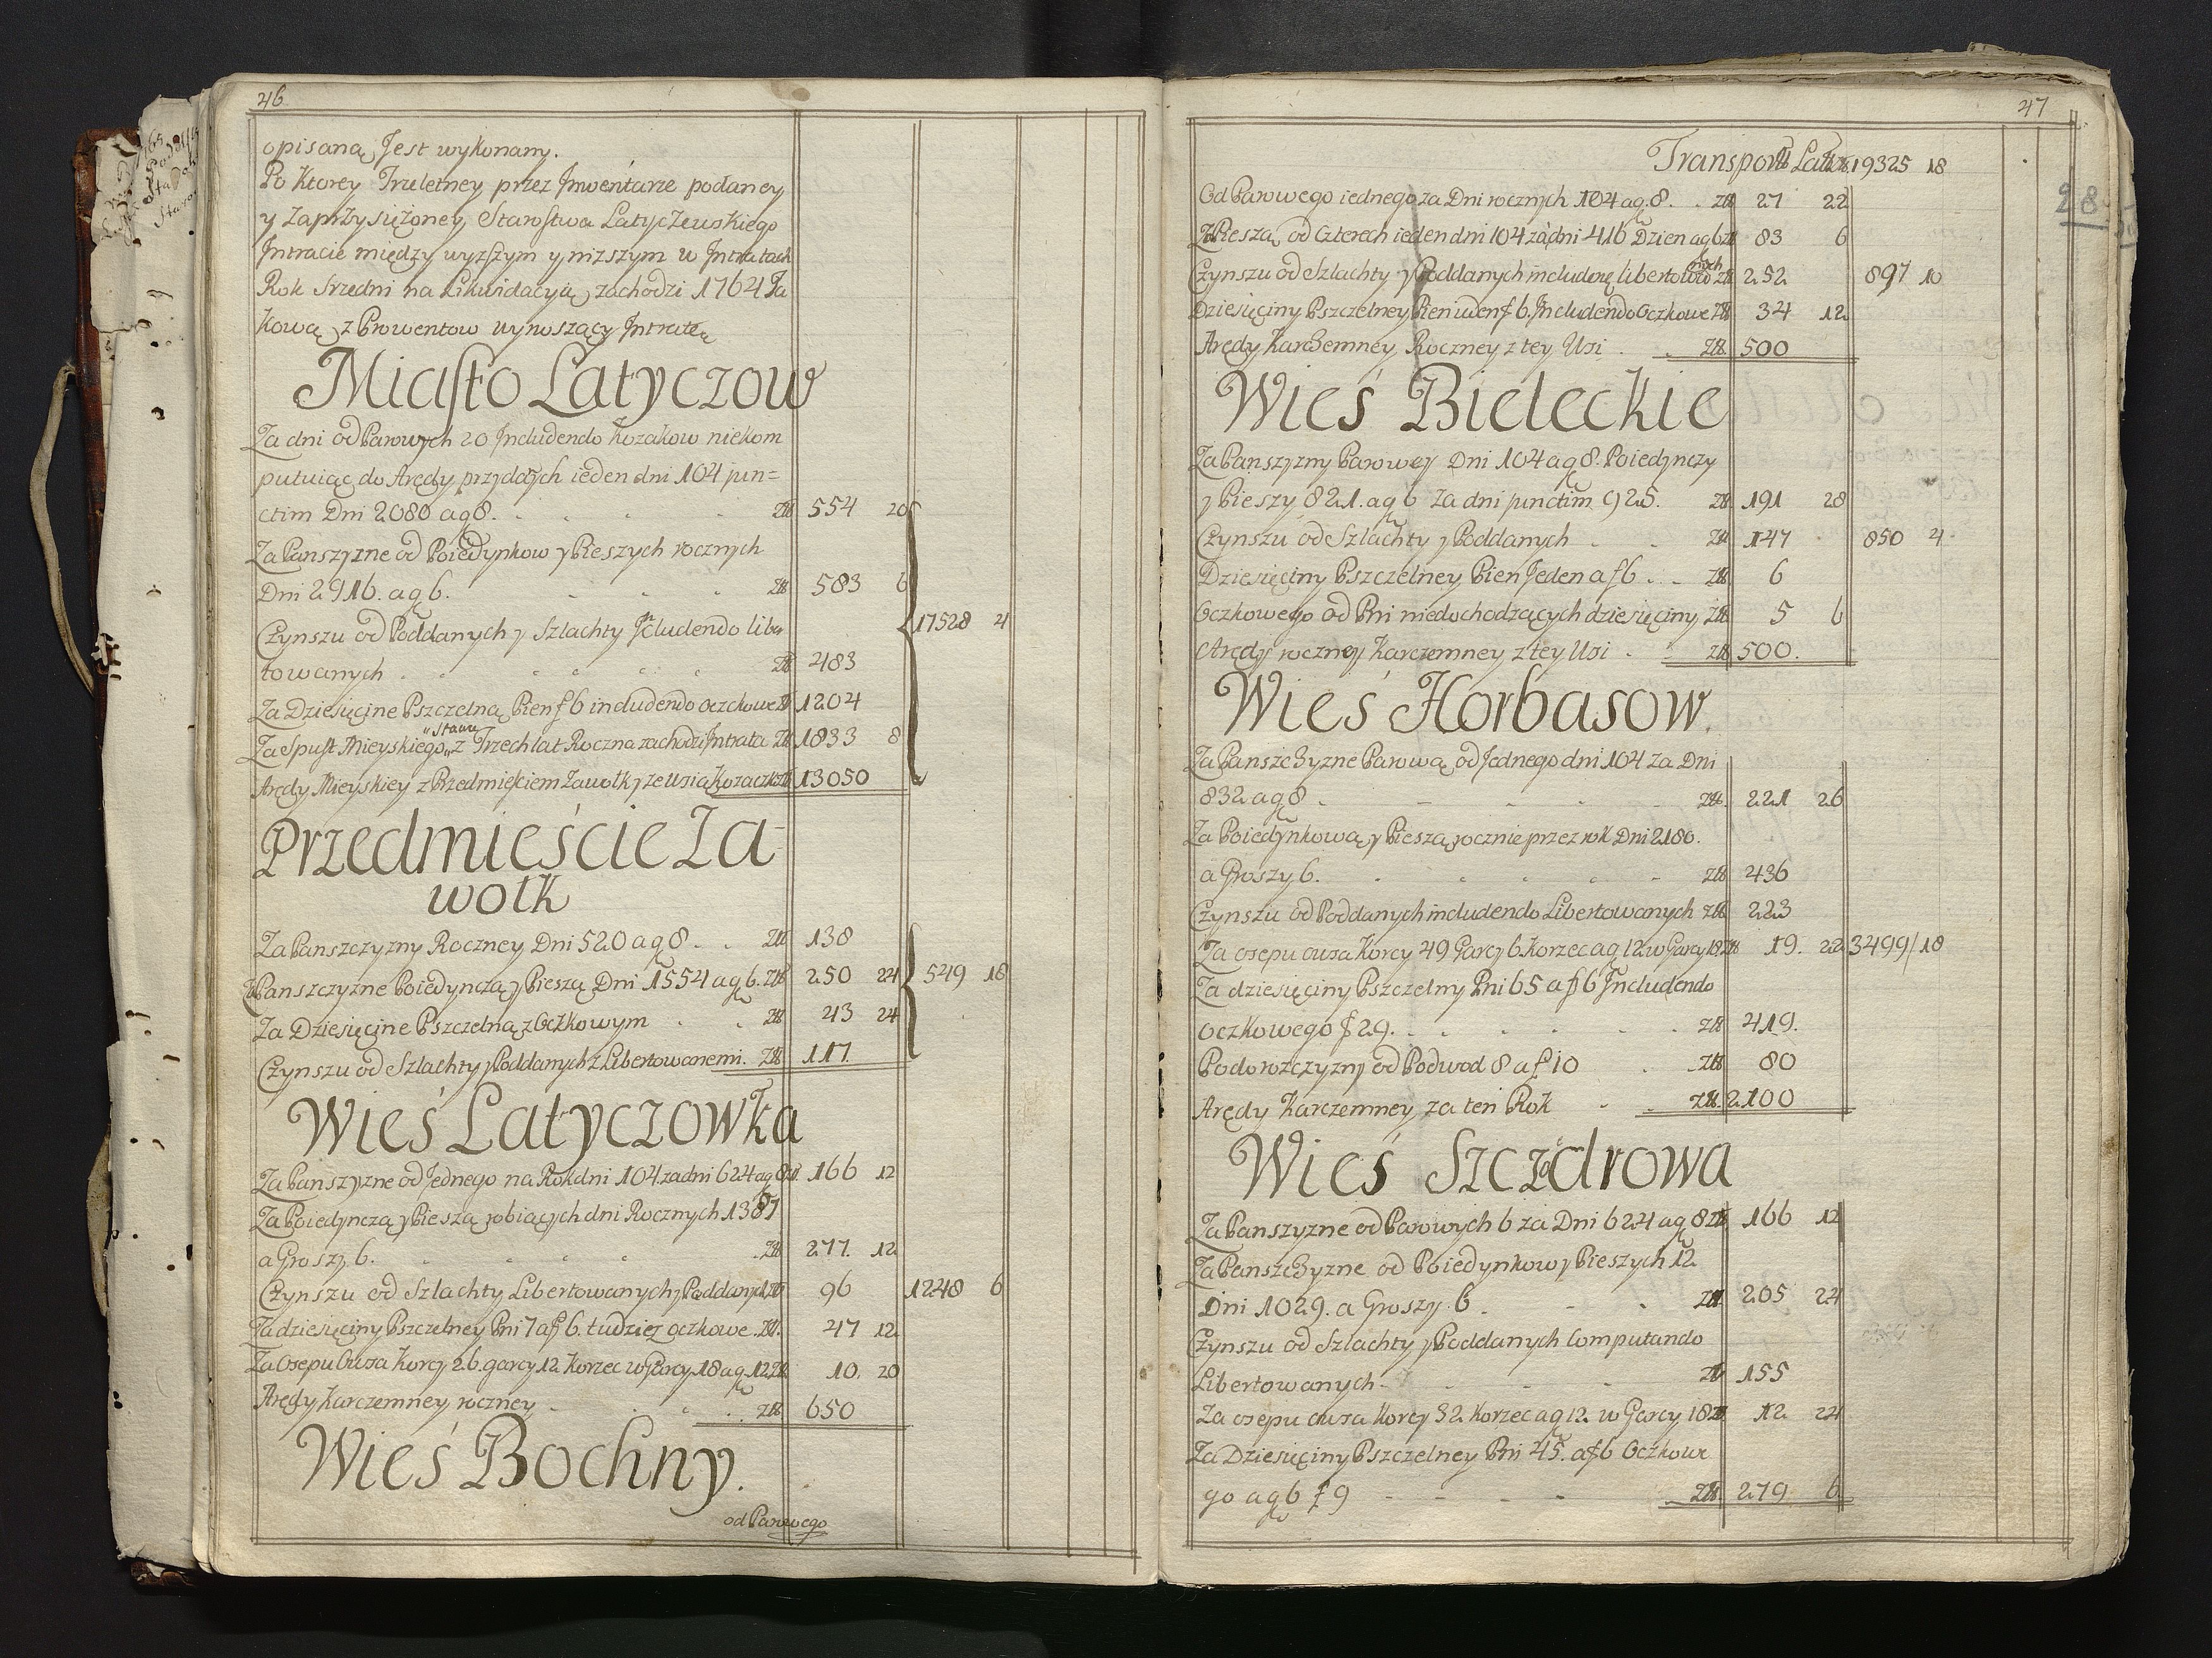 46.
opisaną Jest wykonany.
Po Ktorey Trzletney przez Jnwentarze podaney
y Zaprzysiężoney Starostwa Latyczewskiego
Jntracie między wyzszym y nizszym w Jntratach
Rok Srzedni na Likwidacyią zachodzi 1764 Ta
Kową z Prowentow wynoszący Jntratą
Miasto Latyczow
Za dni od Parowych 20 Jncludendo Kozakow niekom
putuiąc do Arędy przydatych ieden dni 104 jun=
ctim Dni 2080 ag 8. Zł 554 20
Za Panszyzne od Poiedynkow y Pieszych rocznych
Dni 2916. ag 6. Zł 583 6
Czynszu od Poddanych y Szlachty Jncludendo liber
towanych Zł 483
17528 4
Za Dziesięcine Pszczelną Pien f 6 includendo oczkowe Zł 1204
Za Spust Mieyskiego „Stawu„ z Trzech lat Roczna zachodzi Jntrata Zł 1833 8
Arędy Mieyskiey z Przedmieściem Zawolk y ze Wsią Kozaczki Zł 13050
Przedmieście Za-
wolk
Za Panszczyzny Roczney Dni 520 ag 8. Zł 138
Za Panszczyzne Poiedynczą y Pieszą Dni 1554 ag 6. Zł 250 24 549 18
Za Dziesięcine Pszczelną z Oczkowym Zł 43 24
Czynszu od Szlachty y Poddanych z Libertowanemi. Zł 117.
Wieś Latyczowka
Za Panszyzne od Jednego na Rok dni 104 za dni 624 ag 8 Zł 166 12
Za Poiedynczą y Pieszą robiących dni Rocznych 1387
a Groszy 6. Zł 277. 12
Czynszu od Szlachty Libertowanych y Poddanych Zł 96 1248 6
Za dziesięciny Pszczelney Pni 7 a f 6. tudziez oczkowe Zł. 47 12
Za Osepu Owsa Korcy 26. garcy 12 Korzec w Garcy 18 ag 12 Zł 10. 20
Arędy Karczemney roczney Zł 650
Wieś Bochny.
od Parowego
47
28
Transport Lateris 19325 18
Od Parowego iednego za Dni rocznych 104 ag. 8. Zł 27 22
Za Pieszą od Czterech ieden dni 104 za dni 416 Dzien ag 6 Zł 83 6
Czynszu od Szlachty y Poddanych includendo libertowanych Zł 252 897 10
Dziesięciny Pszczelney Pien iuden f 6. Jncludendo Oczkowe Zł 34 12
Arędy Karczemney Roczney z tey Wsi Zł 500
Wieś Bieleckie
Za Panszyzny Parowey Dni 104 ag 8. Poiedynczy
y Pieszy 821. ag 6 Za dni junctim 925. Zł 191 28
Czynszu od Szlachty y Poddanych Zł 147 850 4.
Dziesięciny Pszczelney Pien Jeden a f 6 Zł 6
Oczkowego od Pni niedochodzących dziesięciny Zł 5 6
Arędy roczney Karczemney z tey Wsi Zł 500.
Wieś Horbasow.
Za Panszczyzne Parową od Jednego dni 104 Za Dni
832 ag 8 Zł. 221 26
Za Poiedynkową y Pieszą rocznie przez rok Dni 2180.
a Groszy 6. Zł 436
Czynszu od Poddanych includendo Libertowanych Zł 223
Za osepu owsa Korcy 49 Garcy 6. Korzec ag 12. w Garcy 18 Zł 19. 22 3499/18
Za dziesięciny Pszczelny Pni 65 a f 6 Jncludendo
oczkowego f 29. Zł 419.
Podorozczyzny od Podwod 8 a f 10 Zł 80
Arędy Karczemney za ten Rok Zł. 2100
Wieś Szczodrowa
Za Panszyzne od Parowych 6 za Dni 624 ag 8 Zł 166 12
Za Panszczyzne od Poiedynkow y Pieszych 12
Dni 1029. a Groszy 6 Zł 205 24
Czynszu od Szlachty y Poddanych Computando
Libertowanych Zł 155
Za osepu owsa Korcy 32 Korzec ag 12 w Garcy 18 Zł 12 24
Za Dziesięciny Pszczelney Pni 45. a f 6 Oczkowe
go ag 6 f 9 Zł. 279 6